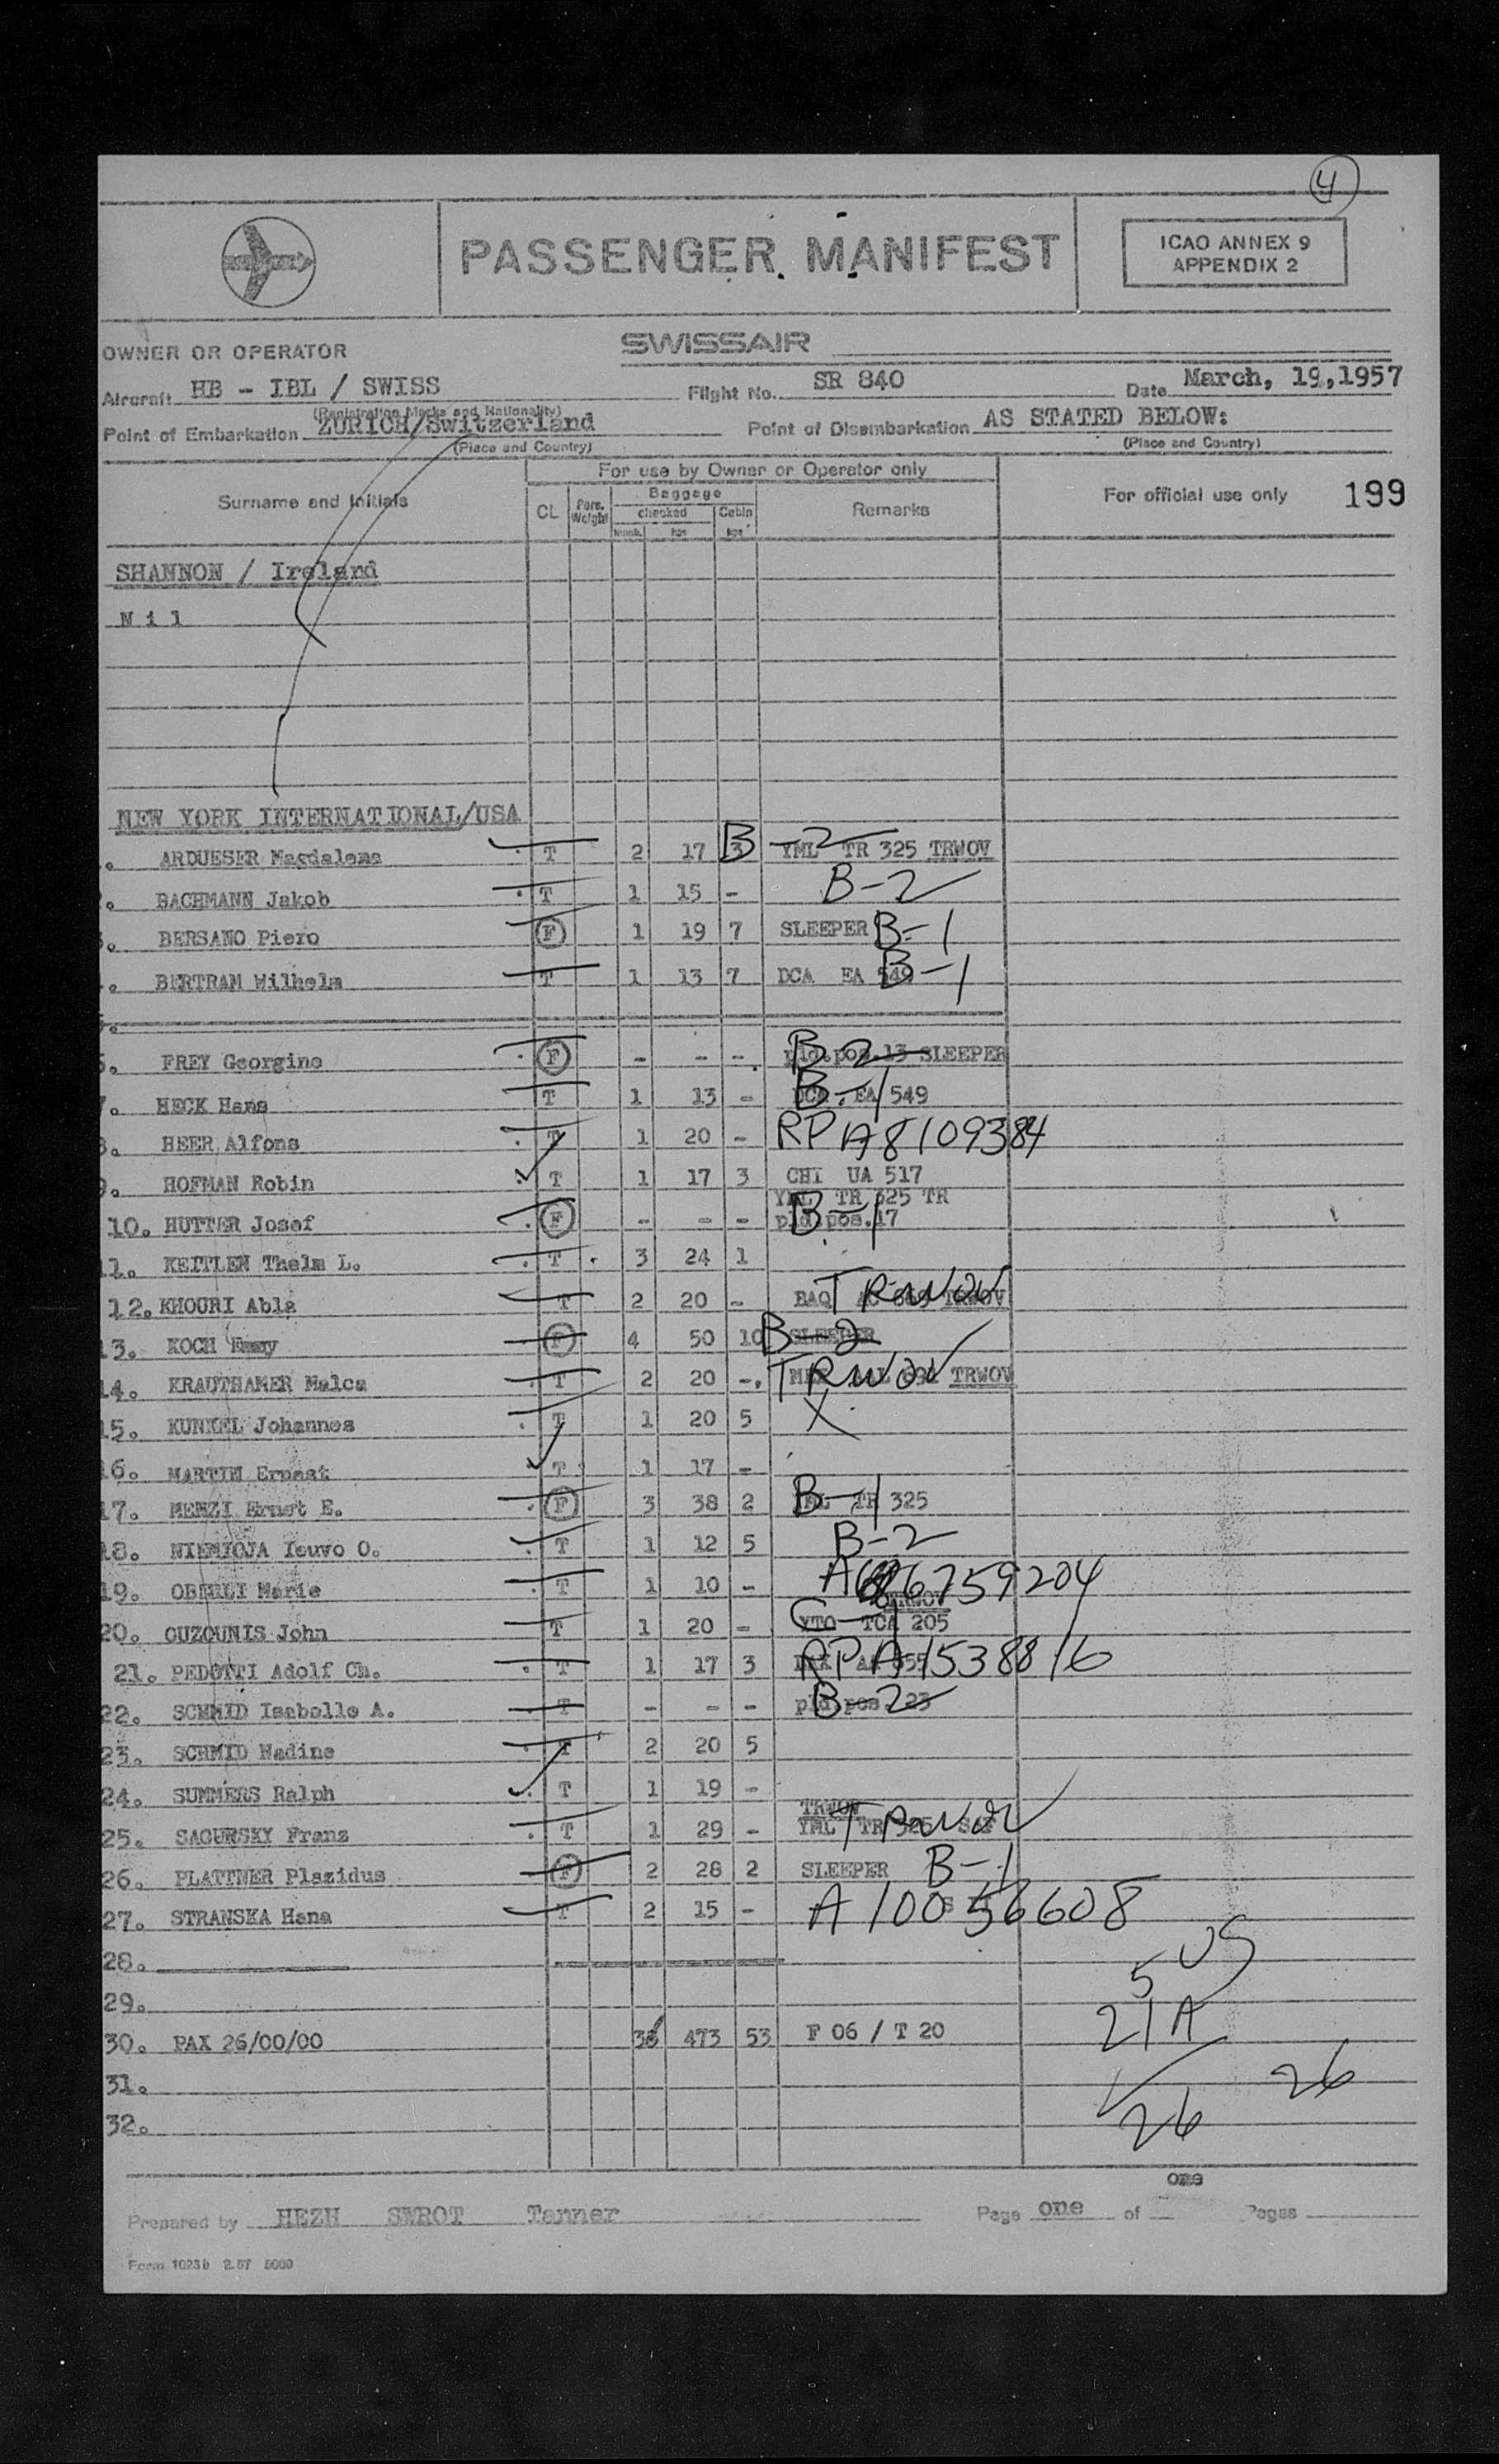 4
PASSENGER MANIFEST
ICAO ANNEX 9
APPENDIX 2
OWNER OR OPERATOR SWISSAIR
Aircraft HB - IBL / SWISS Flight No. SR 840 Date March, 19,1957
(Registration Marks and Nationality)
Point of Embarkation ZURICH/Switzerland Point of Disembarkation AS STATED BELOW:
(Place and Country) (Place and Country)
For use by Owner or Operator only
Surname and Initials CL Pers. Weight Baggage checked Cabin Remarks For official use only 199
Numb. kgs kgs
SHANNON / Ireland
N i l
NEW YORK INTERNATIONAL/USA
. ARDUESER Magdalena T 2 17 3 B-2 YML TR 325 TRWOV
. BACHMANN Jakob T 1 15 - B-2
. BERSANO Piero F 1 19 7 SLEEPER B-1
. BERTRAM Wilhelm T 1 13 7 DCA EA 549 B-1
5.
. FREY Georgine F - - - pld.pos.13 SLEEPER B-2
7. HECK Hans T 1 13 - DCA EA 549 B-1
8. HEER Alfons T 1 20 - RP A8109384
9. HOFMAN Robin T 1 17 3 CHI UA 517
YML TR 325 TR
10. HUTTER Josef F - - - pld.pos.17 B-1
11. KEITLEN Thelm L. T 3 24 1
12. KHOURI Abla T 2 20 - BAQ TRWOV TRWOV
13. KOCH Emmy F 4 50 10 SLEEPER B-2
14. KRAUTHAMER Malca T 2 20 - TRWOV TRWOV
15. KUNKEL Johannes T 1 20 5 X
16. MARTIN Ernest T 1 17 -
17. MENZI Ernst E. F 3 38 2 YML TR 325 B-1
18. NIEMIOJA Iouvo O. T 1 12 5 B-2
19. OBERLI Marie T 1 10 - 6759204
TRWOV
20. OUZOUNIS John T 1 20 - YTO TCA 205 C-1
21. PEDOTTI Adolf Ch. T 1 17 3 RP A1538816
22. SCHMID Isabelle A. T - - - pld.pos.23 B-2
23. SCHMID Nadine T 2 20 5
24. SUMMERS Ralph T 1 19 -
TRWOV
25. SAGURSKY Franz T 1 29 - YML TR 325 TRWOV
26. PLATTNER Plazidus F 2 28 2 SLEEPER B-1
27. STRANSKA Hana T 2 15 - A10056608
28. 5 US
29. 21 A
30. PAX 26/00/00 473 53 F 06 / T 20
31. 26
32. 26
one
Prepared by HEZH SWROT Tanner Page one of Pages
Form 1023b 2.57 5000